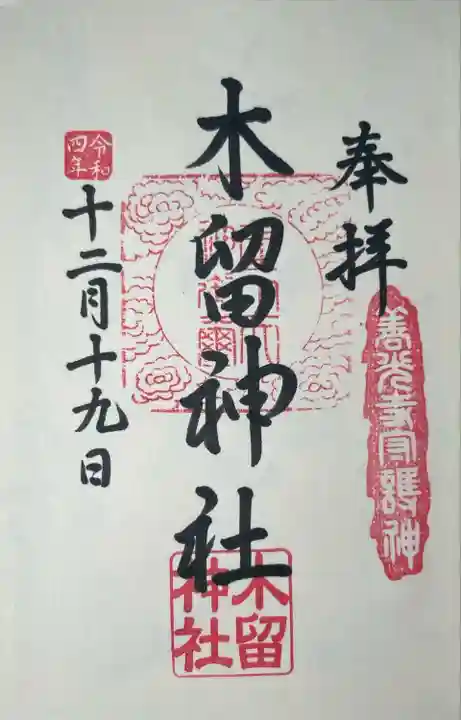 奉拝
善光寺守護神
木留神社
木留
神社
令和
四年
十二月十九日